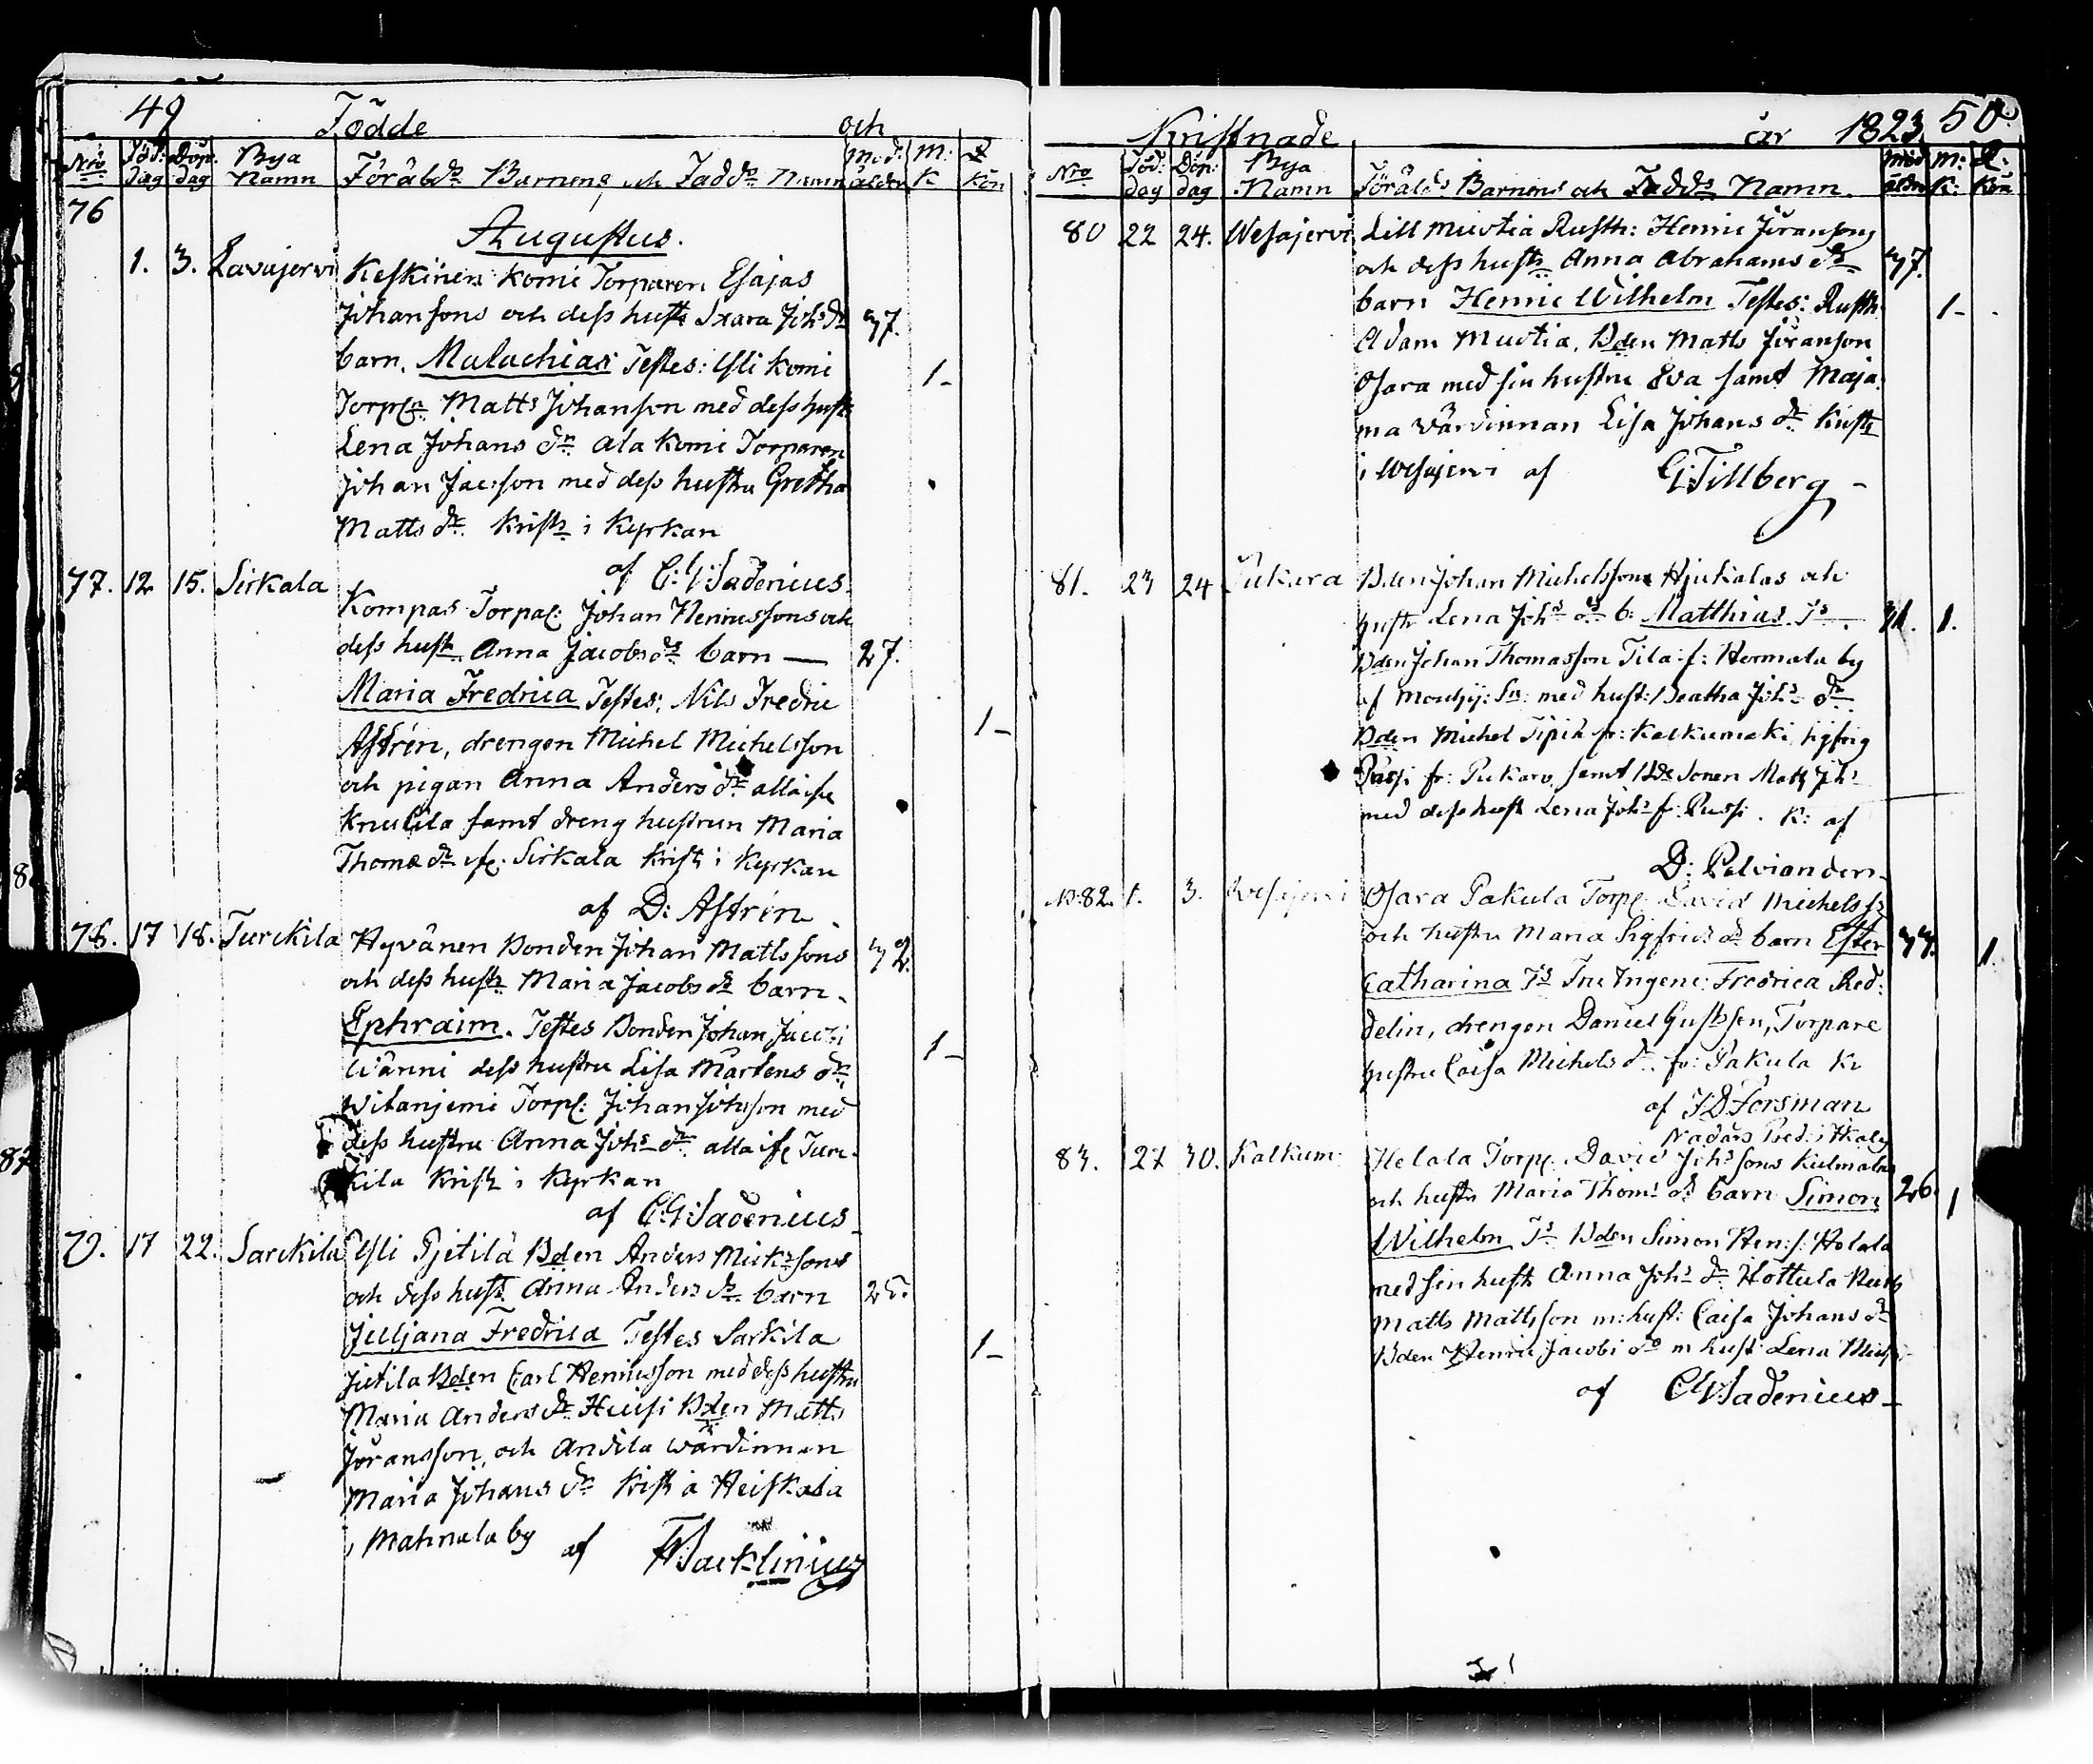 49 Födde och
Nro Föd: dag Döp. dag Bya Namn Föräldrs Barnens och Fadds Namn Mod: ålder M: K Q Kön
76
Augustus.
1. 3. Lavajervi Keskinen Komi Torparen Esajas
Johanssons och dess hustr Saara Johs dr 37.
barn. Malachias Testes: Yli Komi 1-
Torp:n Matts Johanson med dess hustr
Lena Johans dr Ala Komi Torparen
Johan Jacsson med dess hustru Gretha
Matts dr. Kristn i Kyrkan
af C: G: Sadenius.
77. 12 15. Sirkala
Kompas Torpa: Johan Henricssons och
dess hustr Anna Jacobs dr barn — 27.
Maria Fredrica Testes: Nils Fredric 1-
Astrén, drengen Michel Michelsson
och pigan Anna Anders dr alla ifr
Knutila samt dreng hustrun Maria
Thomæ dr ifr: Sirkala Kristn i Kyrkan
af D: Astrén
78. 17 18. Turckila Hyvänen Bonden Johan Mattssons 32.
och dess hustr Maria Jacobs dr barn.
Ephraim. Testes Bonden Johan Jacobi 1-
Wänni dess hustru Lisa Mårtens dr
Witanjemi Torp: Johan Johsson med
dess hustru Anna Johs dr alla ifr Turc-
kila Kristn i Kyrkan
af C: G: Sadenius
79. 17 22. Sarckila Yli Pjetilä Bden Anders Micksons
och dess hustr Anna Anders dr barn 25.
Juljana Fredrica Testes Sarkila 1-
Jutila Bden Carl Henricsson med dess hustru
Maria Anders dr Heusi Bden Matts
Jöransson, och Andila wärdinnan
Maria Johans dr Kristn å Heiskala
i Mahnala by af Backlinius
Kristnade år 1823 50.
Nro Föd: dag Döp: dag Bya Namn Föräldrs Barnens och Fadds Namn. Mod ålder M: K: Q: Kön
80 22 24. Wesajervi Lill Muotia Rusth: Henric Jöransons
och dess hustr Anna Abrahams dr 37.
barn Henric Wilhelm Testes: Rusth 1-
Adam Muotia, Bden Matts Jöranson
Osara med sin hustru Eva samt Maja
ma wärdinnan Lisa Johans dr Kristn
i Wesajervi af G: Tillberg
81. 23 24 Pukara Bden Johan Michelssons Hjukalas och
hustr Lena Johs dr b: Matthias. Ts. 1.
Bden Johan Thomasson Tila f: Hormala by
af Mouhij: Sn: med hust: Beatha Johs dr
Bden Michel Tipik fr: Kalkumaki Sigfrig
Passi fr: Pukara, samt Bde Sonen Matts Johs
med dess hust Lena Johs f: Pussi. K: af
D: Polviander
No 82. 1. 3. Wesajervi Osara Pakula Torp: David Michelss:s
och hustru Maria Sigfrids dr barn Ester 1.
Catharina Ts Fru Ingenr Fredrica Red-
delin, drengen Daniel Gustfson, Torpare
hustru Caisa Michels dr. fr: Pakula Kr
af J D Forsman
83. 27 30. Kalkum Helala Torp: David Johssons Kulmalas
och hustr Maria Thoms dr barn Simon 26. 1
Wilhelm Ts Bden Simon Hen:s: Holala
med sin hustr Anna Johs dr Hottula Rusth
Matts Mattsson m: hust: Caisa Johans dr
Bden Henric Jacobi do m hust Lena Michs
af C G: Sadenius